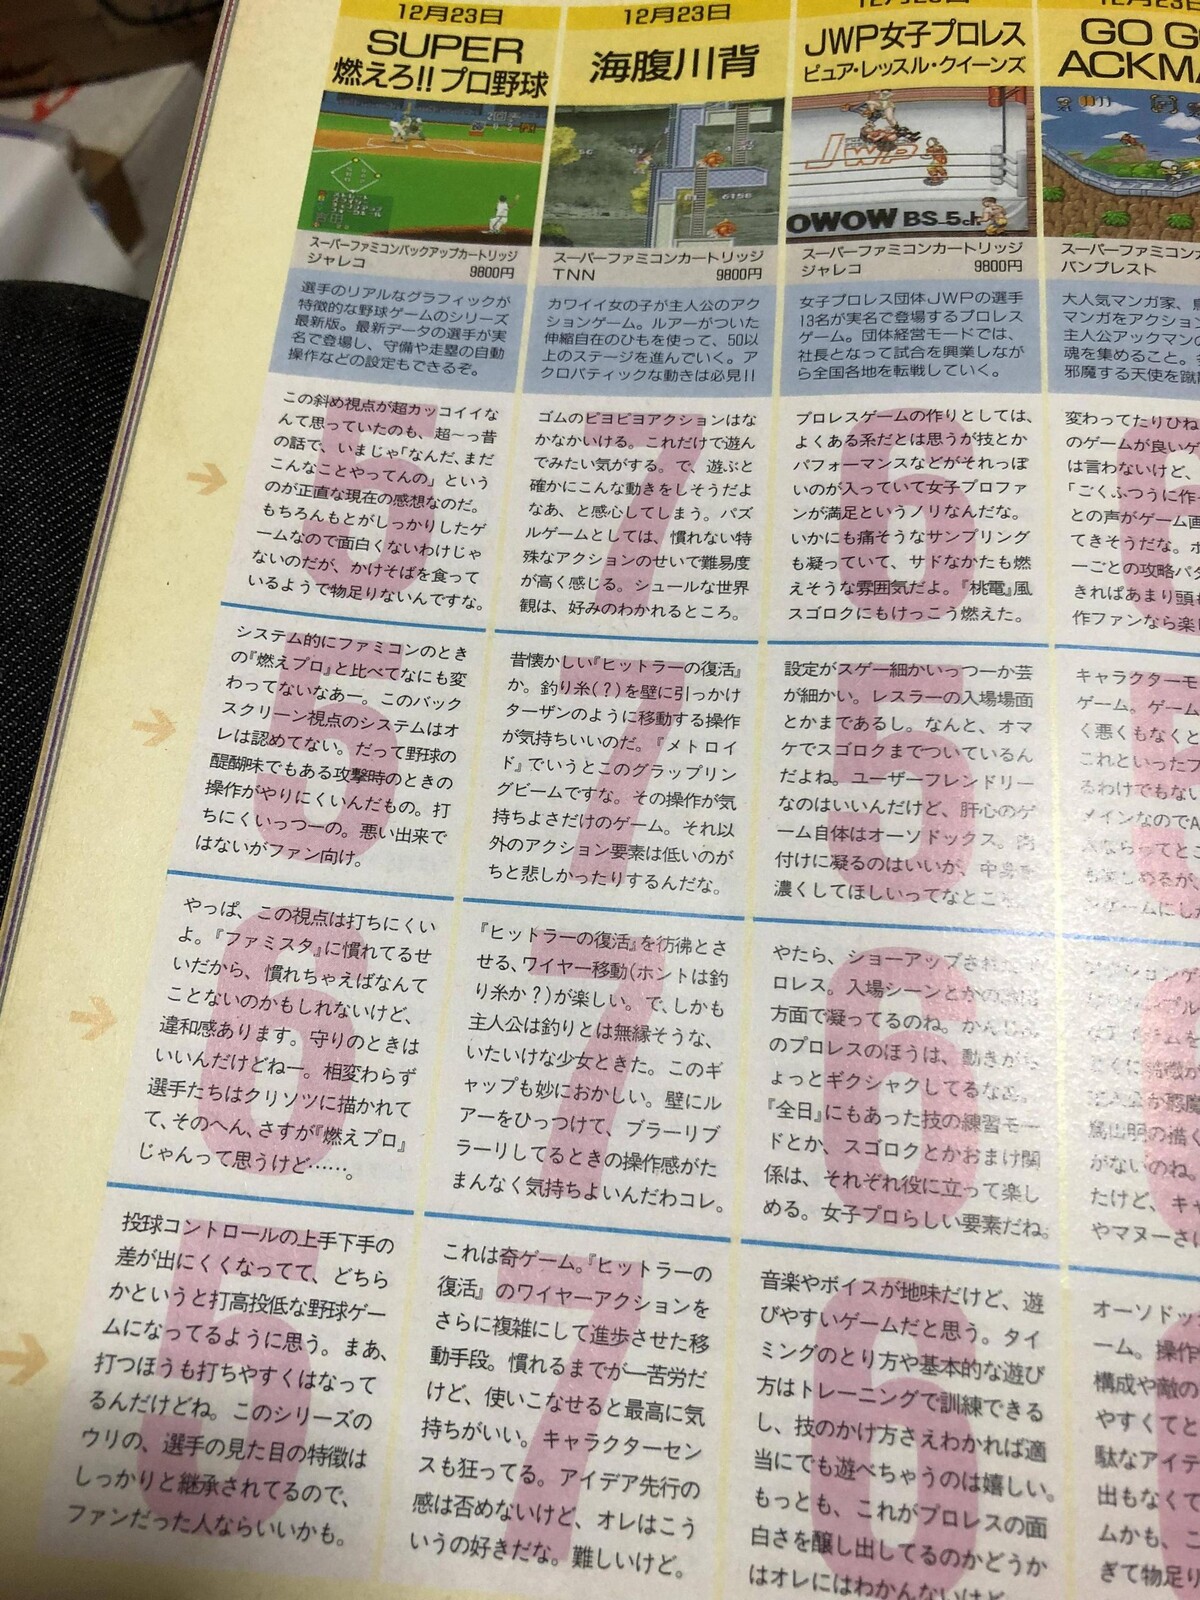 12月23日
SUPER
燃えろ!!プロ野球
スーパーファミコンバックアップカートリッジ
ジャレコ 9800円
選手のリアルなグラフィックが
特徴的な野球ゲームのシリーズ
最新版。最新データの選手が実
名で登場し、守備や走塁の自動
操作などの設定もできるぞ。
この斜め視点が超カッコイイな
んて思っていたのも、超〜っ昔
の話で、いまじゃ「なんだ、まだ
こんなことやってんの」という
のが正直な現在の感想なのだ。
もちろんもとがしっかりしたゲ
ームなので面白くないわけじゃ
ないのだが、かけそばを食って
いるようで物足りないんですな。
5
システム的にファミコンのとき
の『燃えプロ』と比べてなにも変
わってないなあー。このバック
スクリーン視点のシステムはオ
レは認めてない。だって野球の
醍醐味でもある攻撃時のときの
操作がやりにくいんだもの。打
ちにくいっつーの。悪い出来で
はないがファン向け。
5
やっぱ、この視点は打ちにくい
よ。『ファミスタ』に慣れてるせ
いだから、慣れちゃえばなんて
ことないのかもしれないけど、
違和感あります。守りのときは
いいんだけどねー。相変わらず
選手たちはクリソツに描かれて
て、そのへん、さすが『燃えプロ』
じゃんって思うけど……。
6
投球コントロールの上手下手の
差が出にくくなってて、どちら
かというと打高投低な野球ゲー
ムになってるように思う。まあ、
打つほうも打ちやすくはなって
るんだけどね。このシリーズの
ウリの、選手の見た目の特徴は
しっかりと継承されてるので、
ファンだった人ならいいかも。
5
12月23日
海腹川背
スーパーファミコンカートリッジ
TNN 9800円
カワイイ女の子が主人公のアク
ションゲーム。ルアーがついた
伸縮自在のひもを使って、50以
上のステージを進んでいく。ア
クロバティックな動きは必見!!
ゴムのビヨビヨアクションはな
かなかいける。これだけで遊ん
でみたい気がする。で、遊ぶと
確かにこんな動きをしそうだよ
なあ、と感心してしまう。パズ
ルゲームとしては、慣れない特
殊なアクションのせいで難易度
が高く感じる。シュールな世界
観は、好みのわかれるところ。
7
昔懐かしい『ヒットラーの復活』
か。釣り糸(?)を壁に引っかけ
ターザンのように移動する操作
が気持ちいいのだ。『メトロイ
ド』でいうとこのグラップリン
グビームですな。その操作が気
持ちよさだけのゲーム。それ以
外のアクション要素は低いのが
ちと悲しかったりするんだな。
7
『ヒットラーの復活』を彷彿とさ
せる、ワイヤー移動(ホントは釣
り糸か?)が楽しい。で、しかも
主人公は釣りとは無縁そうな、
いたいけな少女ときた。このギ
ャップも妙におかしい。壁にル
アーをひっつけて、ブラーリブ
ラーリしてるときの操作感がた
まんなく気持ちよいんだわコレ。
7
これは奇ゲーム。『ヒットラーの
復活』のワイヤーアクションを
さらに複雑にして進歩させた移
動手段。慣れるまでが一苦労だ
けど、使いこなせると最高に気
持ちがいい。キャラクターセン
スも狂ってる。アイデア先行の
感は否めないけど、オレはこう
いうの好きだな。難しいけど。
7
12月23日
JWP女子プロレス
ピュア・レッスル・クイーンズ
JWP
OWOW BS-5ch
スーパーファミコンカートリッジ
ジャレコ 9800円
女子プロレス団体JWPの選手
13名が実名で登場するプロレス
ゲーム。団体経営モードでは、
社長となって試合を興業しなが
ら全国各地を転戦していく。
プロレスゲームの作りとしては、
よくある系だとは思うが技とか
パフォーマンスなどがそれっぽ
いのが入っていて女子プロファ
ンが満足というノリなんだな。
いかにも痛そうなサンプリング
も凝っていて、サドなかたも燃
えそうな雰囲気だよ。『桃電』風
スゴロクにもけっこう燃えた。
6
設定がスゲー細かいっつーか芸
が細かい。レスラーの入場場面
とかまであるし。なんと、オマ
ケでスゴロクまでついているん
だよね。ユーザーフレンドリー
なのはいいんだけど、肝心のゲ
ーム自体はオーソドックス。肉
付けに凝るのはいいが、中身を
濃くしてほしいってなとこ
5
やたら、ショーアップされ
ロレス。入場シーンとかの
方面で凝ってるのね。かんじ
のプロレスのほうは、動きが
ょっとギクシャクしてるなあ。
『全日』にもあった技の練習モー
ドとか、スゴロクとかおまけ関
係は、それぞれ役に立って楽し
める。女子プロらしい要素だね。
6
音楽やボイスが地味だけど、遊
びやすいゲームだと思う。タイ
ミングのとり方や基本的な遊び
方はトレーニングで訓練できる
し、技のかけ方さえわかれば適
当にでも遊べちゃうのは嬉しい。
もっとも、これがプロレスの面
白さを醸し出してるのかどうか
はオレにはわかんないけど
6
12月23日
GO G
ACKMA
スーパーファミコン
バンプレスト
大人気マンガ家、
マンガをアクション
主人公アックマンの
魂を集めること。
邪魔する天使を蹴
変わってたりひね
のゲームが良いゲ
は言わないけど、
「ごくふつうに作
との声がゲーム画
てきそうだな。ボ
ーごとの攻略パタ
きればあまり頭
作ファンなら楽し
キャラクターモ
ゲーム。ゲーム
く悪くもなくと
これといったフ
るわけでもない
メインなのでA
鳥山明の描く
がないのね。
たけど、キャ
やマヌーさに
オーソドッ
ーム。操作
構成や敵の
やすくてと
駄なアイテ
出もなくて
ムかも、こ
ぎて物足り